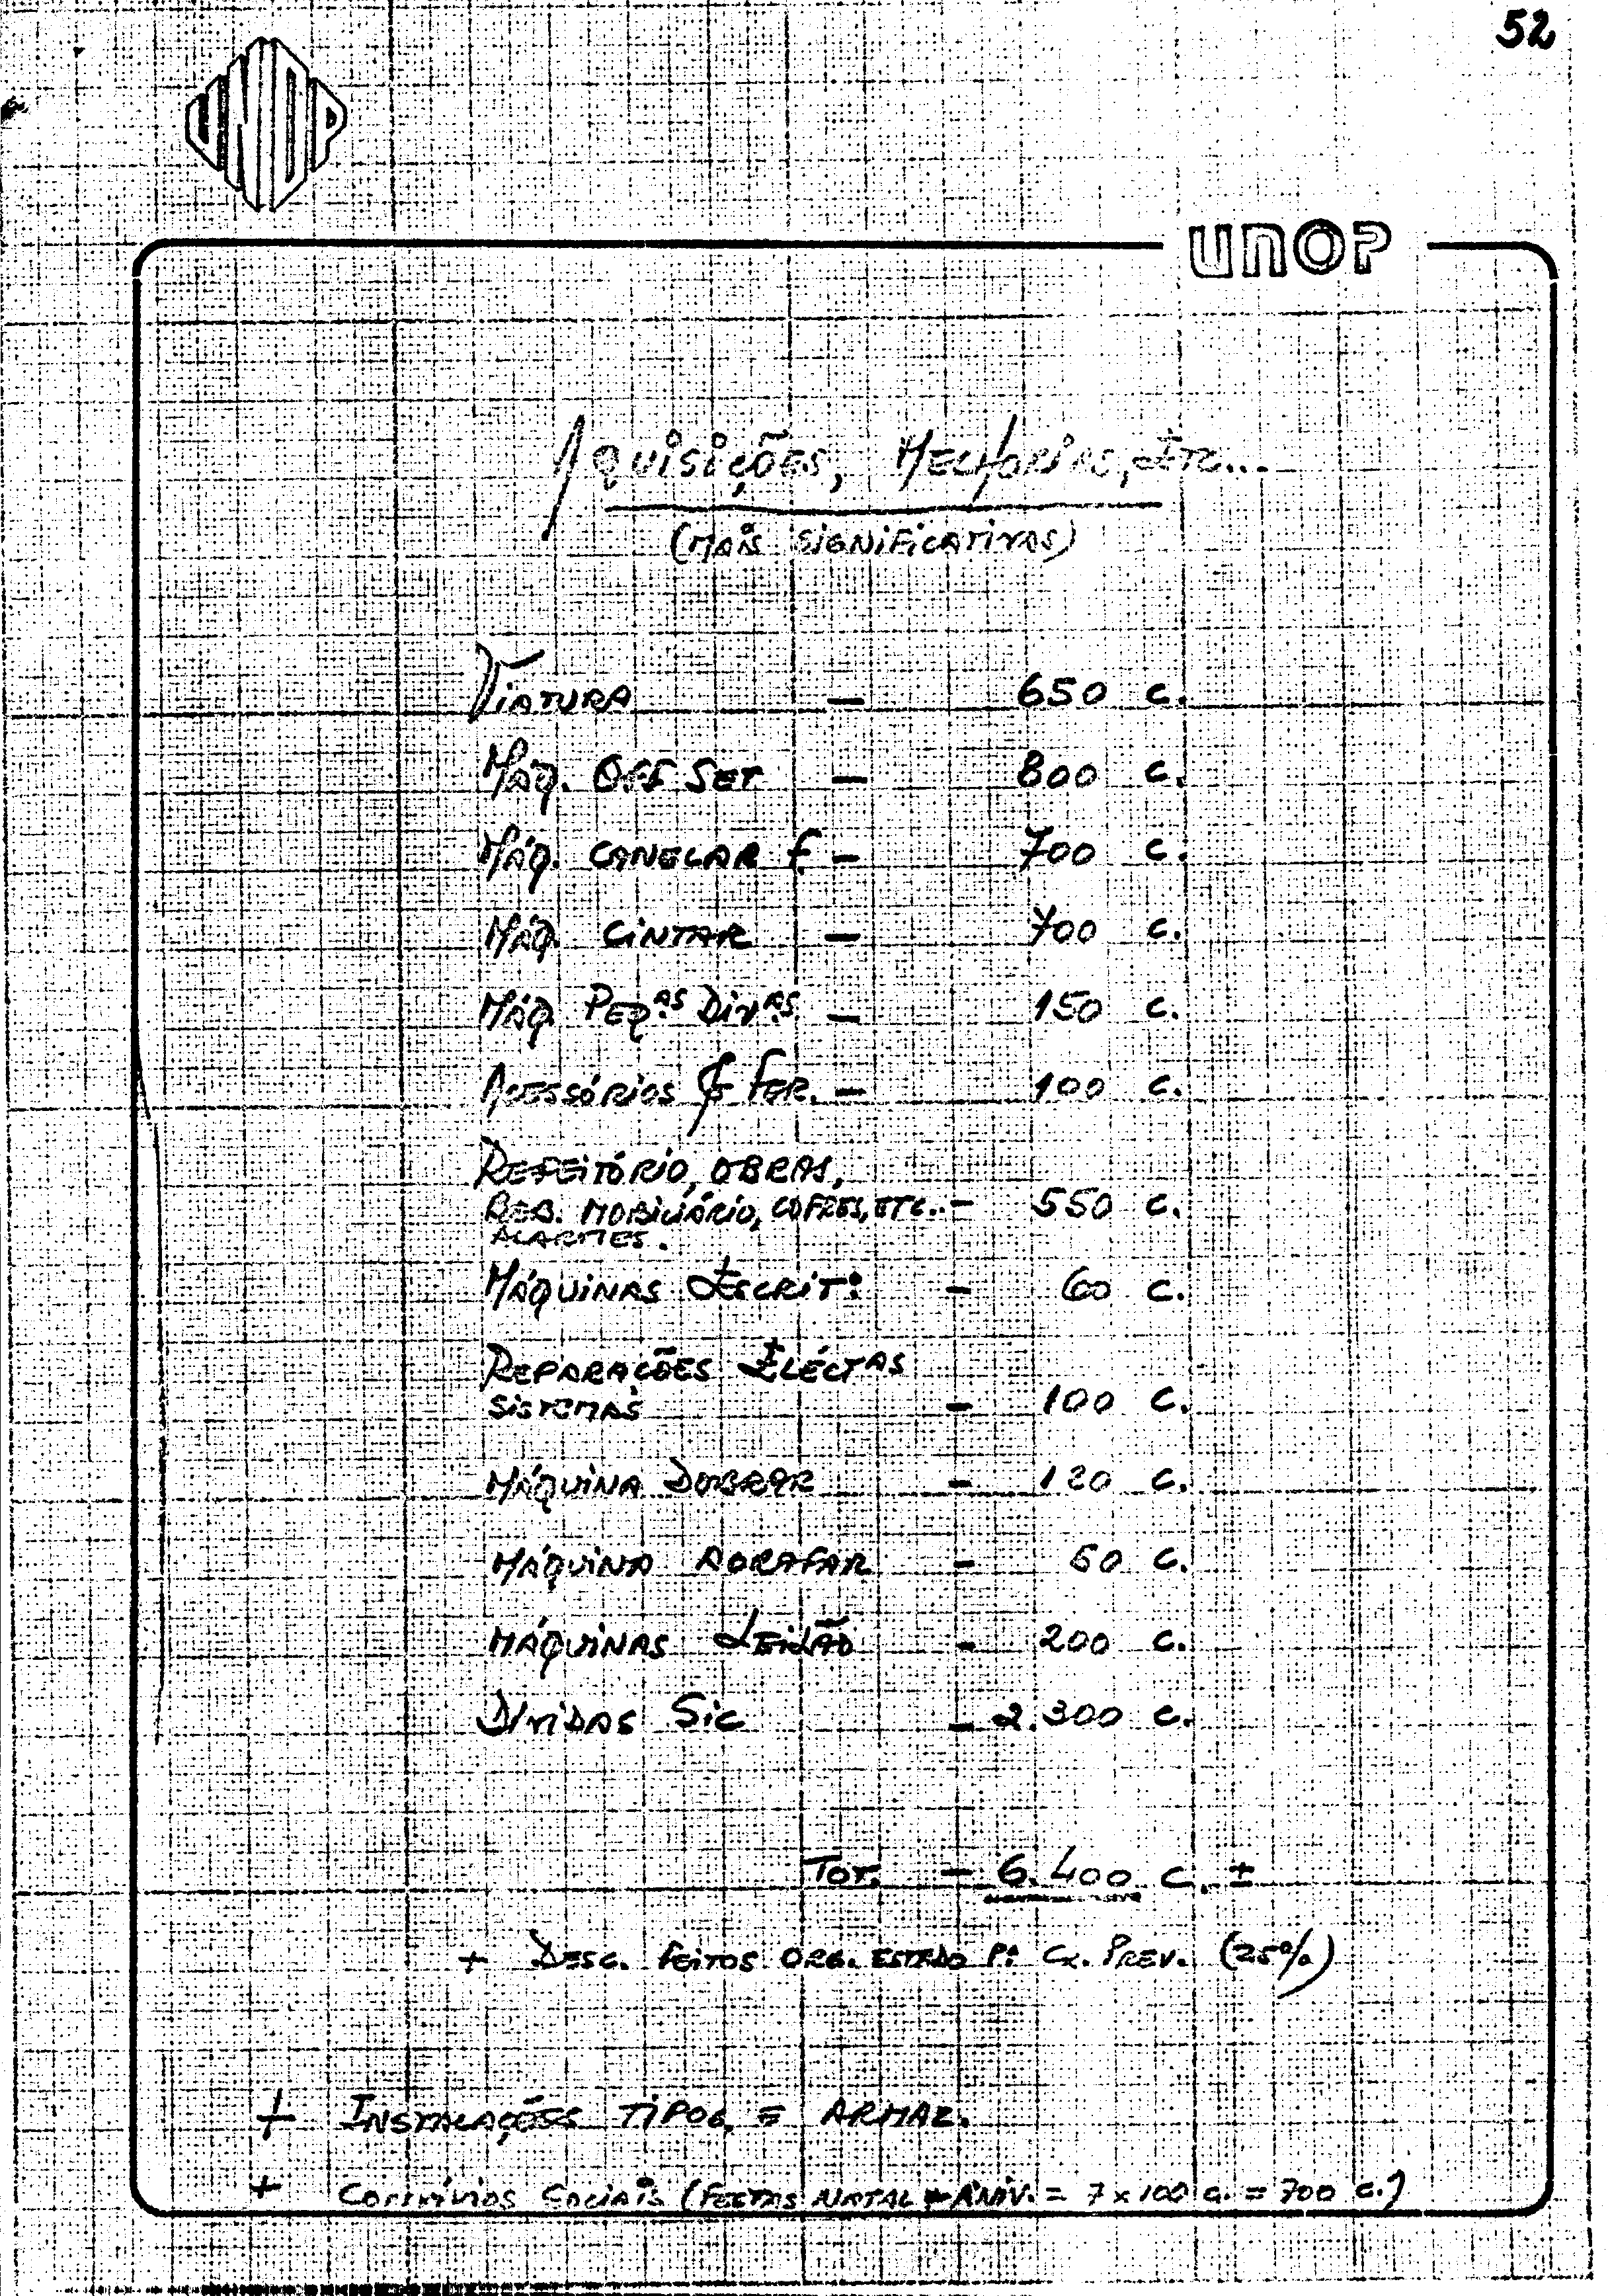 52
UNOP
AQUISIÇÕES, MELHORIAS, ETC...
(MAIS SIGNIFICATIVAS)
VIATURA — 650 C.
MÁQ. OFF SET — 800 C.
MÁQ. CANELAR F. — 700 C.
MÁQ. CINTAR — 700 C.
MÁQ. PEQ.AS DIV.AS — 150 C.
ACESSÓRIOS & FER. — 100 C.
REFEITÓRIO, OBRAS,
REB. MOBILIÁRIO, COFRES, ETC.. — 550 C.
ALARMES.
MÁQUINAS ESCRIT.º — 60 C.
REPARAÇÕES ELÉCTAS
SISTEMAS — 100 C.
MÁQUINA DOBRAR — 120 C.
MÁQUINA AGRAFAR — 50 C.
MÁQUINAS LEILÃO — 200 C.
DIVIDAS SIC — 2.300 C.
TOT. — 6.400 C. ±
+ DESC. FEITOS ORG. ESTADO P.ª CX. PREV. (25%)
+ INSTALAÇÕES TIPOG. E ARMAZ.
+ CONVÍVIOS SOCIAIS (FESTAS NATAL + ANIV. = 7 x 100 C. = 700 C.)